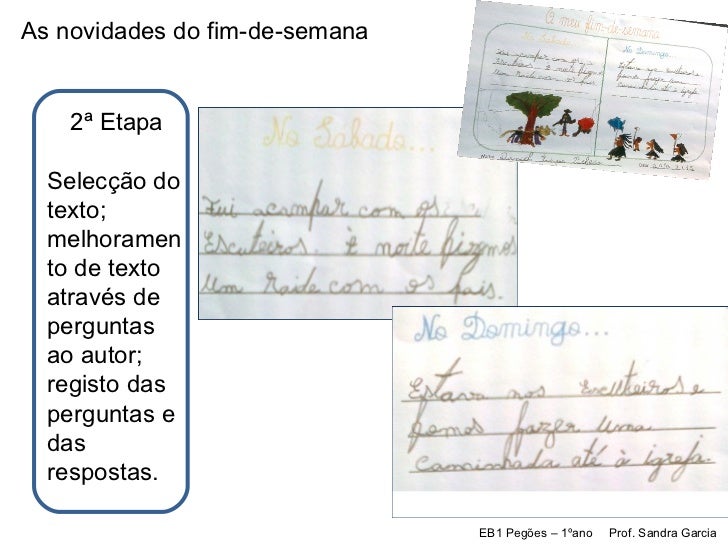 As novidades do fim-de-semana
O meu fim-de-semana
No Sabado...
No Domingo...
2ª Etapa
Selecção do
texto;
melhoramen
to de texto
através de
perguntas
ao autor;
registo das
perguntas e
das
respostas.
No Sabado...
Fui acampar com os
Escuteiros. È noite fizemos
um Raide com os pais.
No Domingo...
Estava nos Escuteiros e
fomos fazer uma
caminhada até à igreja.
EB1 Pegões – 1ºano Prof. Sandra Garcia